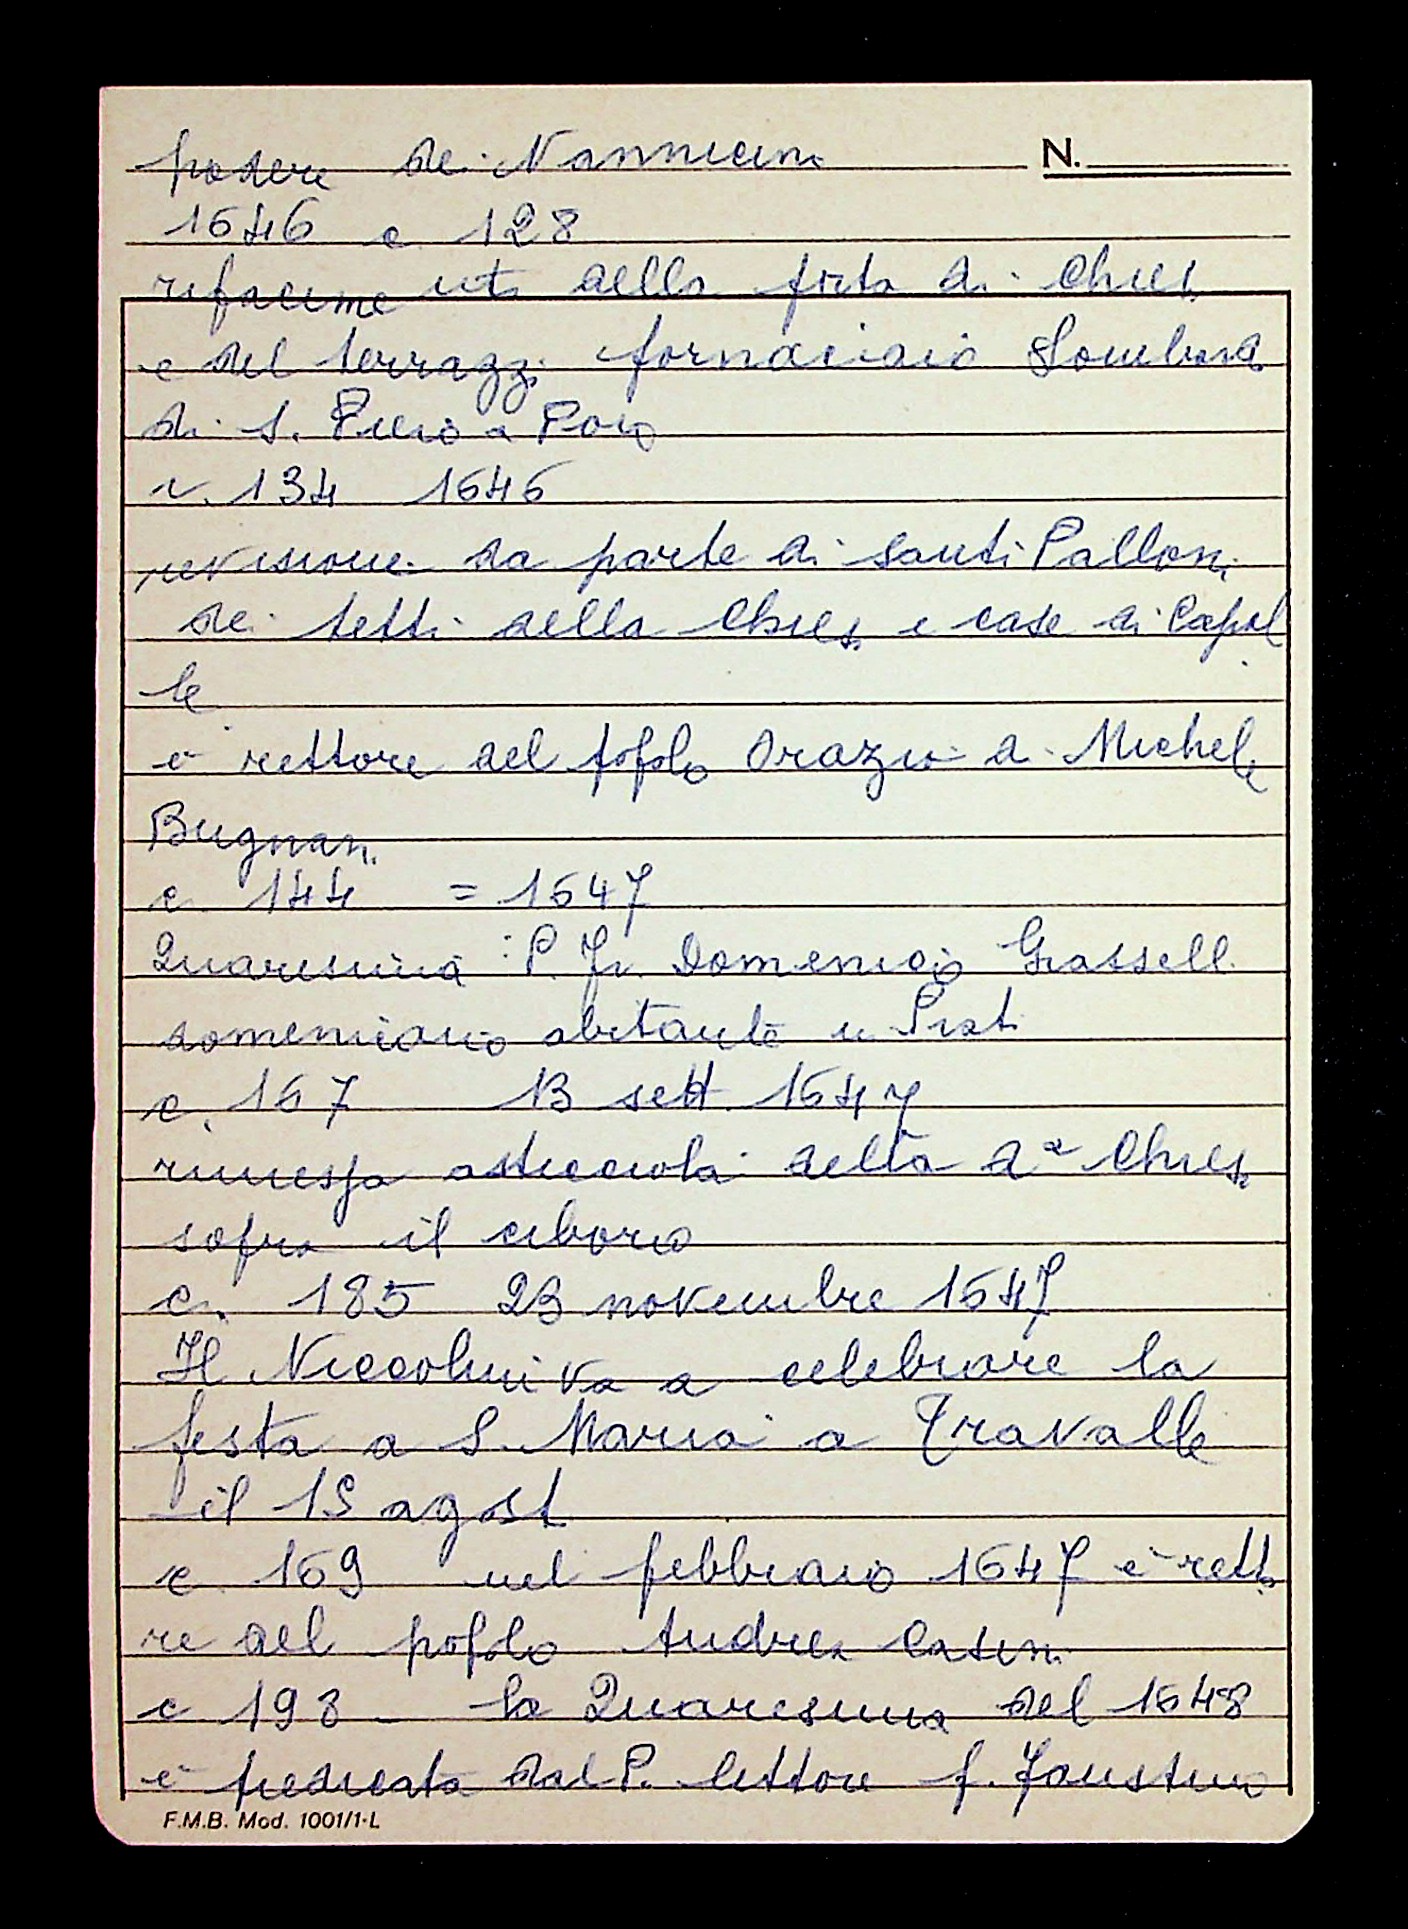 podere dei Nannicini N.
1646 c 128
rifacimento della porta di chies
e del terrazzi fornaciaio Lombard
di S. Piero a Pon
c. 134 1646
revisione da parte di Santi Palloni
dei tetti della chiesa e case di Capal
le
è rettore del popolo Orazio di Michele
Brugnani
c. 144 = 1647
Quaresima: P. Fr. Domenico Grasselli
domenicano abitante in Prato
c. 167 13 sett. 1647
rimessa asticciola della da chiesa
sopra il ciborio
c. 185 23 novembre 1647
Il Niccolini va a celebrare la
festa a S. Maria a Travalle
il 15 agost
c. 169 nel febbraio 1647 è retto
re del popolo Andrea Casini
c 198 - la Quaresima del 1648
è predicata dal P. lettore f. Faustino
F.M.B. Mod. 1001/1-L